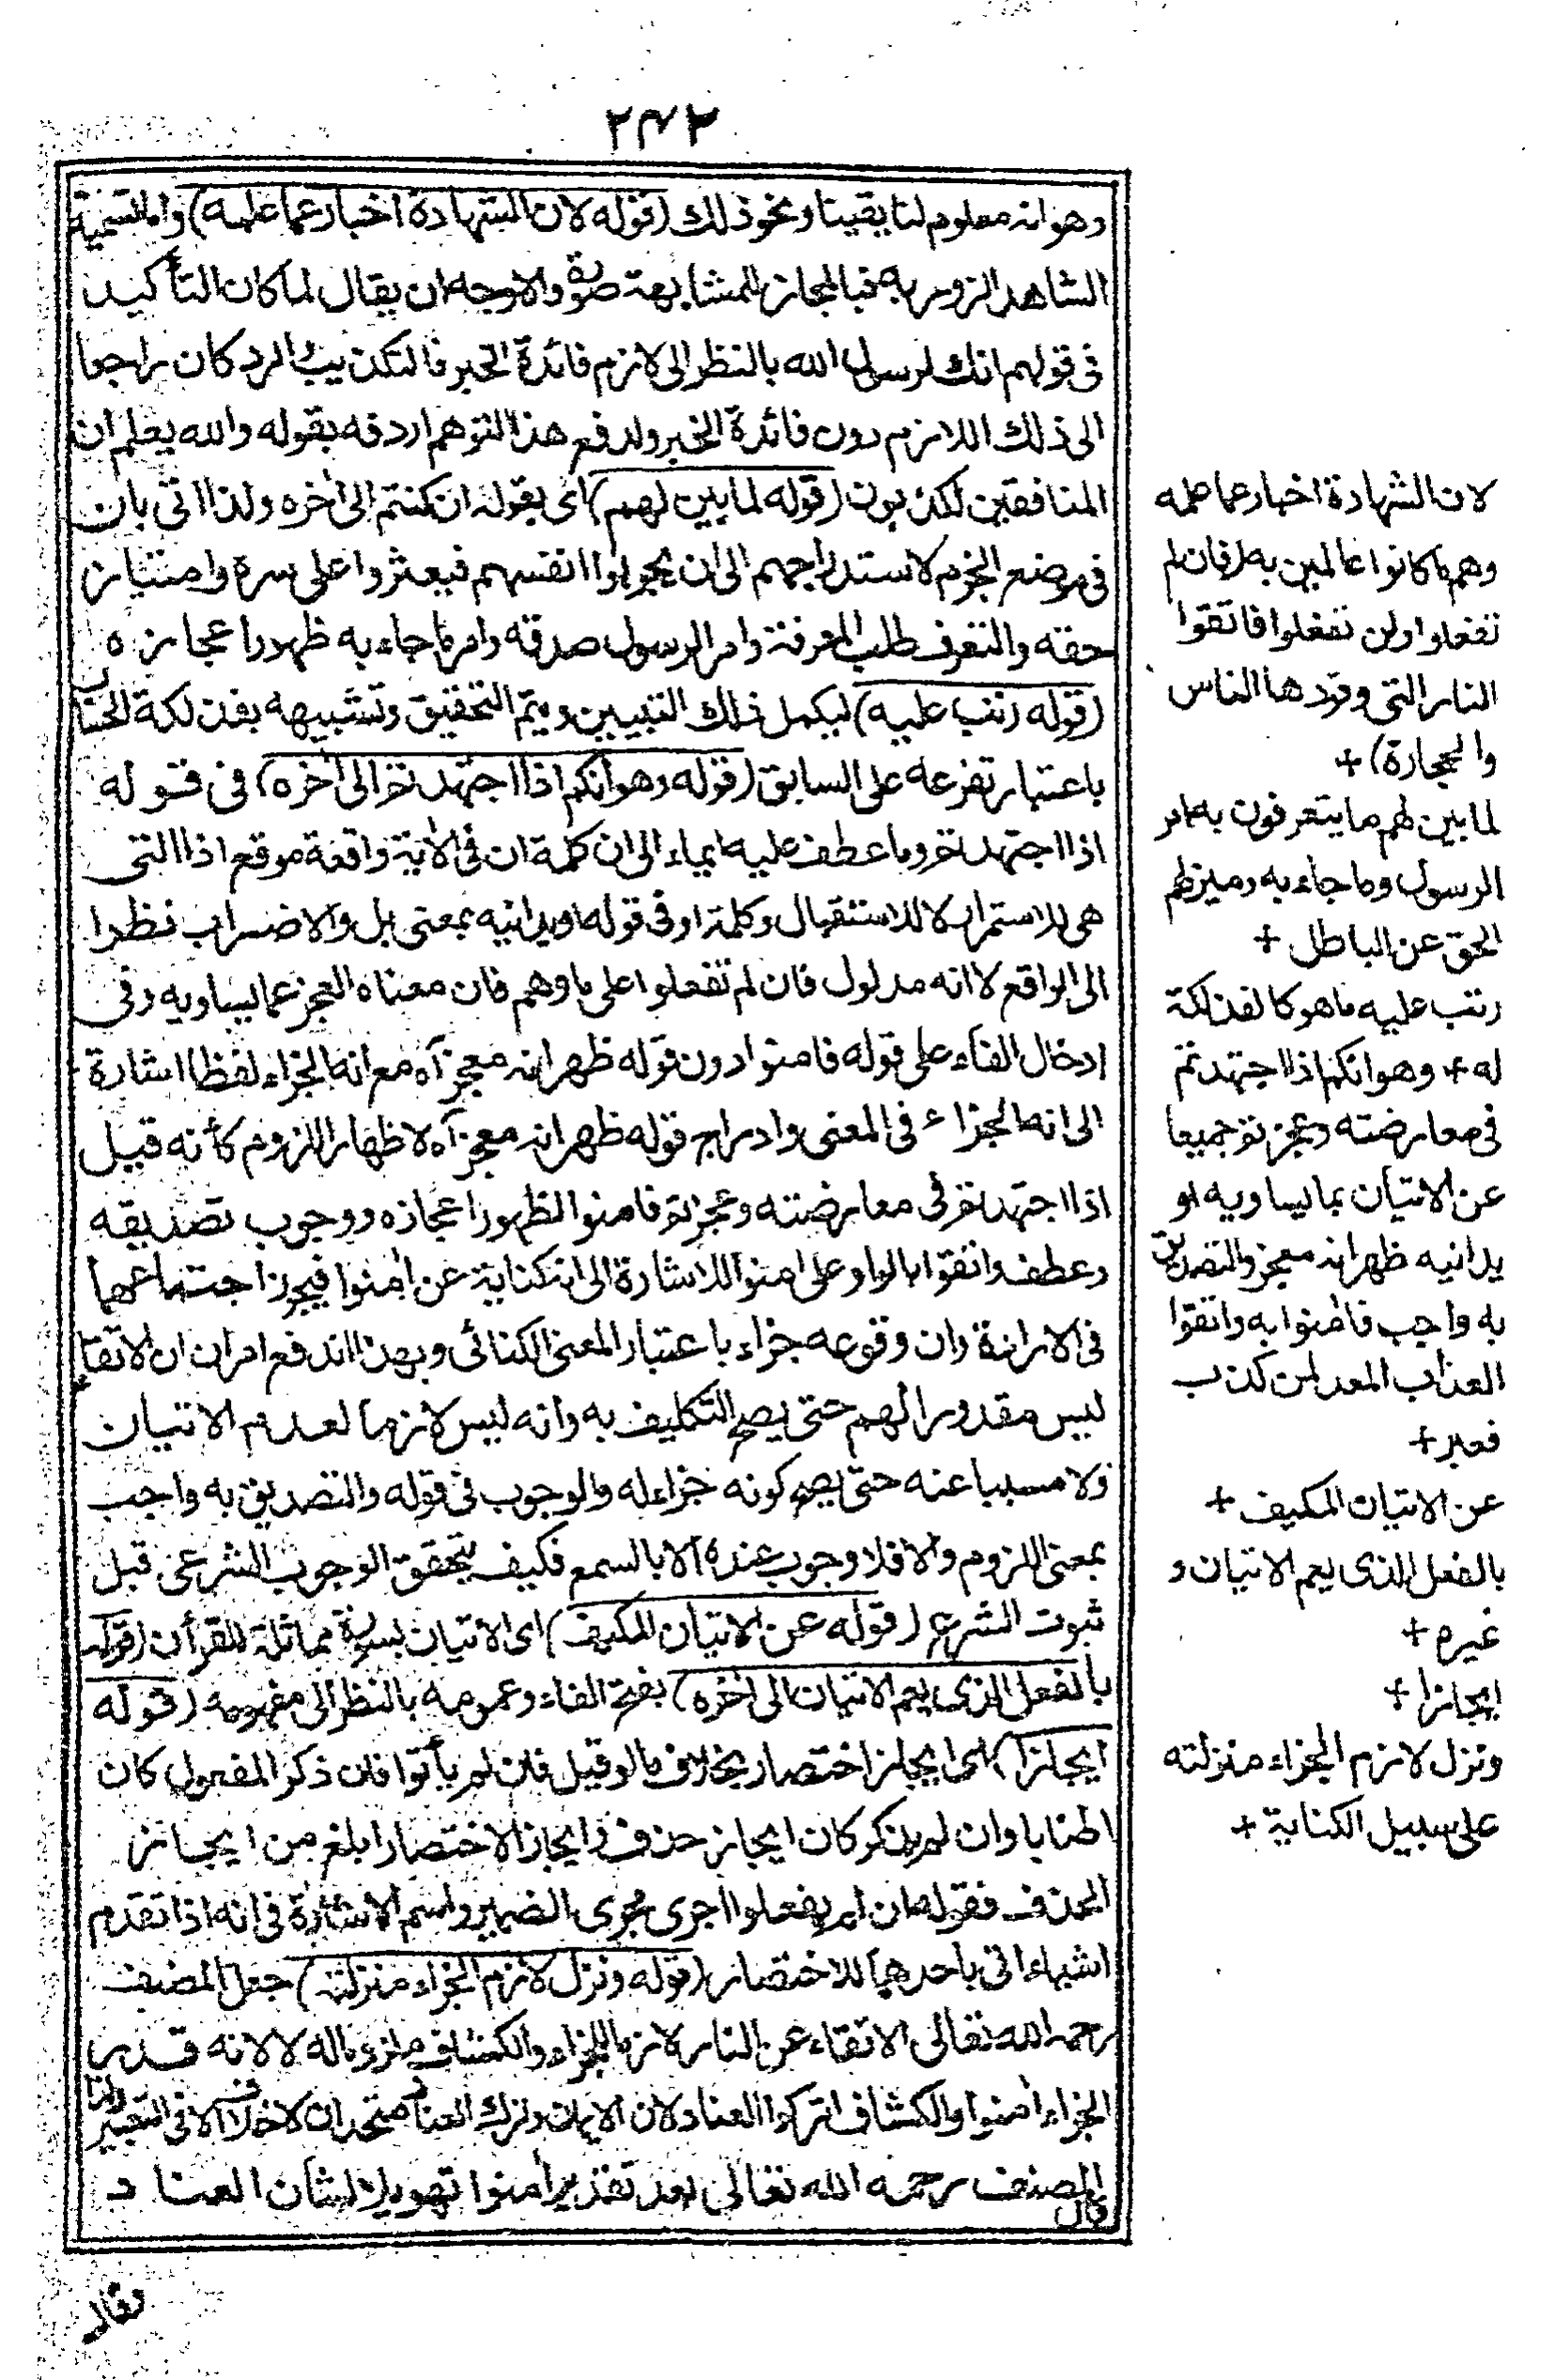 ٢٧٢
وهو انه معلوم لنا يقينا ونحو ذلك (قوله لان الشهادة اخبار عما علمه) واما تسمية
الشاهد الزور به فبالمجاز للمشابهة صورة والاوجه ان يقال لما كان التأكيد
فى قولهم انك لرسول الله بالنظر الى لازم فائدة الخبر فالتكذيب والرد كان راجعا
الى ذلك اللازم دون فائدة الخبر ولدفع هذا التوهم اردفه بقوله والله يعلم ان
المنافقين لكذبون (قوله لما بين لهم) اى بقوله ان كنتم الى اخره ولذا اتى بان
فى موضع الجزم لاستدراجهم الى ان يجربوا انفسهم فيعثروا على سره وامتياز
حقه والتعرف طلب المعرفة وامر الرسول صدقه وامر ما جاء به ظهور اعجازه
(قوله رتب عليه) ليكمل ذلك التبيين ويتم التحقيق وتشبيهه بفذلكة الحساب
باعتبار تفرعه على السابق (قوله وهو انكم اذا اجتهدتم الى اخره) فى قوله
اذا اجتهدتم وما عطف عليه ايماء الى ان كلمة ان فى الاية واقعة موقع اذا التى
هى للاستمرار لا للاستقبال وكلمة او فى قوله او يدانيه بمعنى بل والاضراب نظرا
الى الواقع لا انه مدلول فان لم تفعلوا على ما وهم فان معناه العجز عما يساويه وفى
ادخال الفاء على قوله فامنوا دون قوله ظهر انه معجز آه مع انه الجزاء لفظا اشارة
الى انه الجزاء فى المعنى وادراج قوله ظهر انه معجز آه لاظهار اللزوم كأنه قيل
اذا اجتهدتم فى معارضته وعجزتم فامنوا لظهور اعجازه ووجوب تصديقه
وعطف واتقوا بالواو على امنوا للاشارة الى انه كناية عن امنوا فيجوز اجتماعهما
فى الارادة وان وقوعه جزاء باعتبار المعنى الكنائى وبهذا اندفع امران ان الاتقاء
ليس مقدورا لهم حتى يصح التكليف به وانه ليس لازما لعدم الاتيان
ولا مسببا عنه حتى يصح كونه جزاء له والوجوب فى قوله والتصديق به واجب
بمعنى اللزوم والا فلا وجوب عندنا الا بالسمع فكيف يتحقق الوجوب الشرعى قبل
ثبوت الشرع (قوله عن الاتيان المكيف) اى الاتيان بسورة مماثلة للقرآن (قوله
بالفعل الذى يعم الاتيان الى اخره) بفتح الفاء وعمومه بالنظر الى مفهومه (قوله
ايجازا) اى ايجاز اختصار بخلاف ما لو قيل فان لم يأتوا فان ذكر المفعول كان
اطنابا وان لم يذكر كان ايجاز حذف وايجاز الاختصار ابلغ من ايجاز
الحذف فقوله ان لم يفعلوا اجرى مجرى الضمير واسم الاشارة فى انه اذا تقدم
اشياء اتى باحدهما للاختصار (قوله ونزل لازم الجزاء منزلته) جعل المصنف
رحمه الله تعالى الاتقاء عن النار لازما للجزاء والكشاف ملزوما له لا لانه قدر
الجزاء امنوا والكشاف اتركوا العناد لان الايمان وترك العناد متحدان لا خلاف الا فى التعبير وانما
قال المصنف رحمه الله تعالى بعد تقدير امنوا تهويلا لشان العناد
لان الشهادة اخبار عما علمه
وهم ما كانوا عالمين به (فان لم
تفعلوا ولن تفعلوا فاتقوا
النار التى وقودها الناس
والحجارة) +
لما بين لهم ما يتعرفون به امر
الرسول وما جاء به وميز لهم
الحق عن الباطل +
رتب عليه ما هو كالفذلكة
له + وهو انكم اذا اجتهدتم
فى معارضته وعجزتم جميعا
عن الاتيان بما يساويه او
يدانيه ظهر انه معجز والتصديق
به واجب فامنوا به واتقوا
العذاب المعد لمن كذب
فعبر +
عن الاتيان المكيف +
بالفعل الذى يعم الاتيان و
غيره +
ايجازا +
ونزل لازم الجزاء منزلته
على سبيل الكناية +